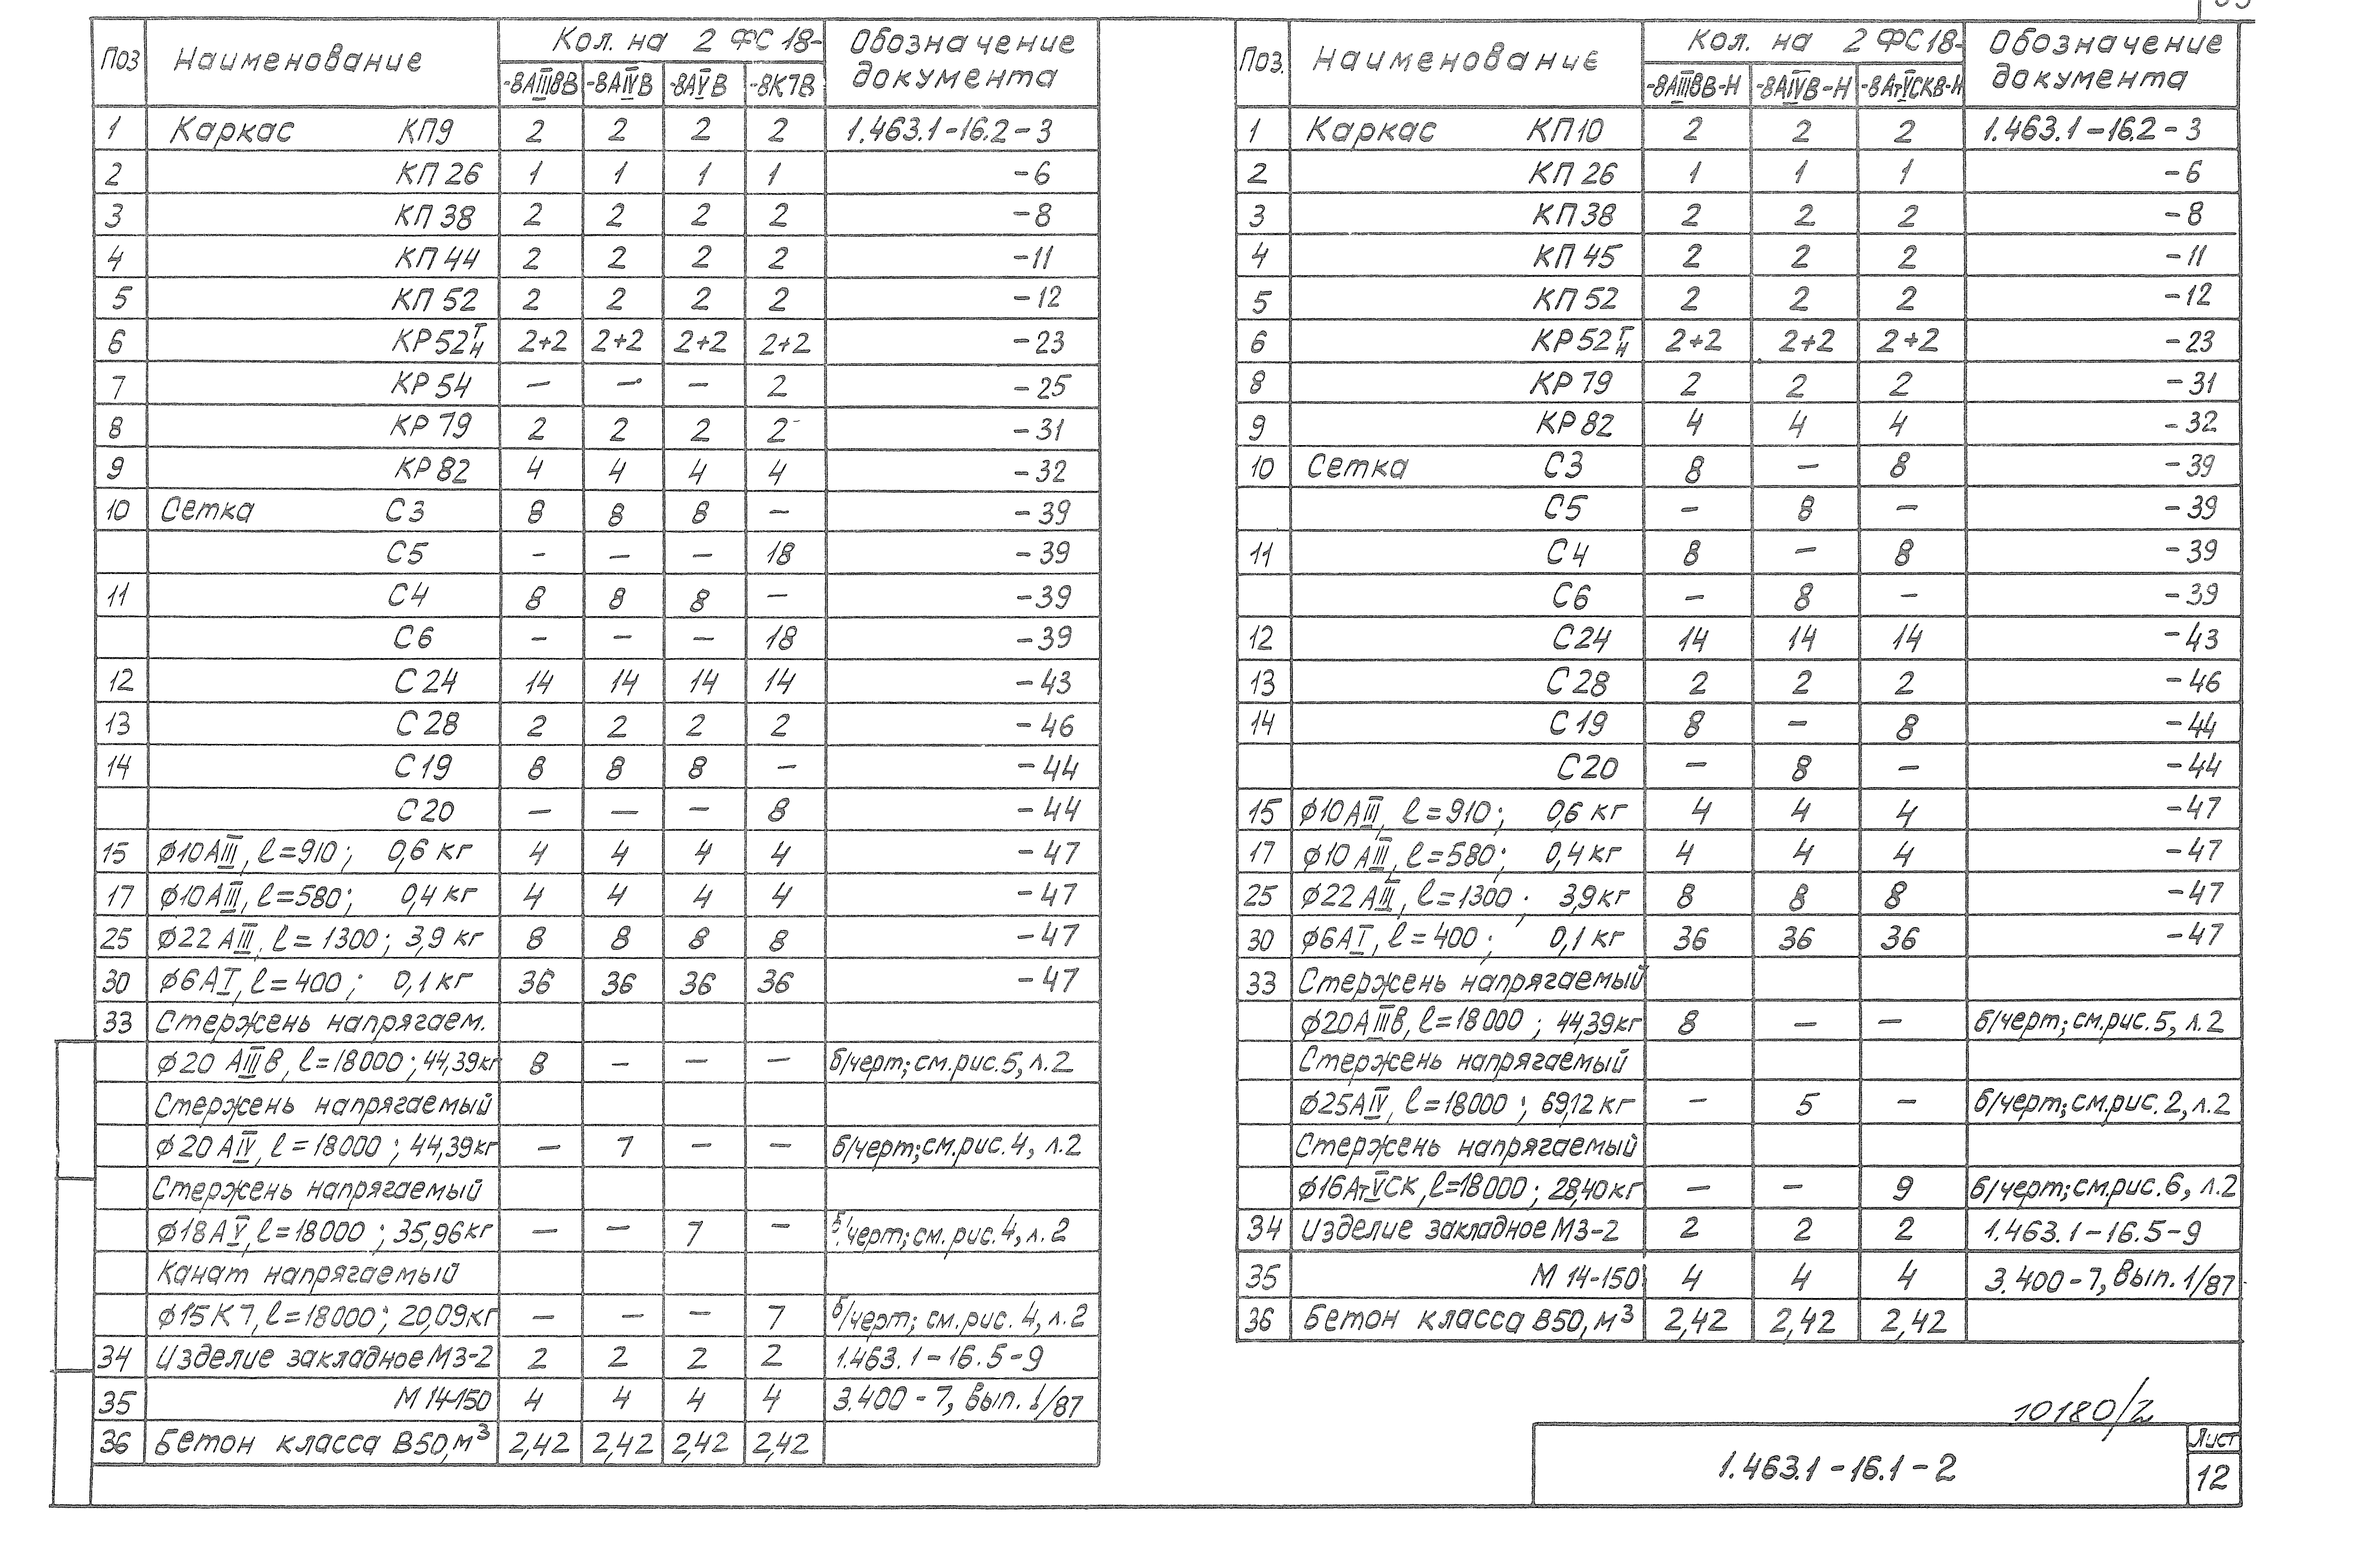 Поз Наименование Кол. на 2 ФС 18- Обозначение документа
-8АIIIвВ -8АIVВ -8АVВ -8К7В
1 Каркас КП9 2 2 2 2 1.463.1-16.2-3
2 КП 26 1 1 1 1 -6
3 КП 38 2 2 2 2 -8
4 КП 44 2 2 2 2 -11
5 КП 52 2 2 2 2 -12
6 КР52 Т/Н 2+2 2+2 2+2 2+2 -23
7 КР 54 — — — 2 -25
8 КР 79 2 2 2 2 -31
9 КР 82 4 4 4 4 -32
10 Сетка С3 8 8 8 — -39
С5 - — — 18 -39
11 С4 8 8 8 — -39
С6 — — — 18 -39
12 С24 14 14 14 14 -43
13 С28 2 2 2 2 -46
14 С19 8 8 8 — -44
С20 — — — 8 -44
15 ф10АIII, ℓ=910; 0,6 кг 4 4 4 4 -47
17 ф10АIII, ℓ=580; 0,4 кг 4 4 4 4 -47
25 ф22АIII, ℓ=1300; 3,9 кг 8 8 8 8 -47
30 ф6АI, ℓ=400; 0,1 кг 36 36 36 36 -47
33 Стержень напрягаем.
ф20 АIIIв, ℓ=18000; 44,39кг 8 — — — б/черт; см.рис.5, л.2
Стержень напрягаемый
ф20 АIV, ℓ=18000; 44,39кг — 7 — — б/черт; см.рис.4, л.2
Стержень напрягаемый
ф18АV, ℓ=18000; 35,96кг — — 7 — б/черт; см.рис.4, л.2
Канат напрягаемый
ф15К7, ℓ=18000; 20,09кг — — — 7 б/черт; см.рис.4, л.2
34 Изделие закладное МЗ-2 2 2 2 2 1.463.1-16.5-9
35 М 14-150 4 4 4 4 3.400-7, вып. 1/87
36 Бетон класса В50, м³ 2,42 2,42 2,42 2,42
Поз. Наименование Кол. на 2 ФС 18- Обозначение документа
-8АIIIвВ-Н -8АIVВ-Н -8АтVСКВ-Н
1 Каркас КП10 2 2 2 1.463.1-16.2-3
2 КП 26 1 1 1 -6
3 КП 38 2 2 2 -8
4 КП 45 2 2 2 -11
5 КП 52 2 2 2 -12
6 КР52 Т/Н 2+2 2+2 2+2 -23
8 КР 79 2 2 2 -31
9 КР 82 4 4 4 -32
10 Сетка С3 8 — 8 -39
С5 — 8 — -39
11 С4 8 — 8 -39
С6 — 8 — -39
12 С24 14 14 14 -43
13 С28 2 2 2 -46
14 С19 8 — 8 -44
С20 — 8 — -44
15 ф10АIII, ℓ=910; 0,6 кг 4 4 4 -47
17 ф10АIII, ℓ=580; 0,4 кг 4 4 4 -47
25 ф22АIII, ℓ=1300; 3,9кг 8 8 8 -47
30 ф6АI, ℓ=400; 0,1 кг 36 36 36 -47
33 Стержень напрягаемый
ф20АIIIв, ℓ=18000; 44,39кг 8 — — б/черт; см.рис.5, л.2
Стержень напрягаемый
ф25АIV, ℓ=18000; 69,12кг — 5 — б/черт; см.рис.2, л.2
Стержень напрягаемый
ф16АтVСК, ℓ=18000; 28,40кг — — 9 б/черт; см.рис.6, л.2
34 Изделие закладное МЗ-2 2 2 2 1.463.1-16.5-9
35 М 14-150 4 4 4 3.400-7, вып. 1/87
36 Бетон класса В50, м³ 2,42 2,42 2,42
10180/2
1.463.1-16.1-2
Лист
12